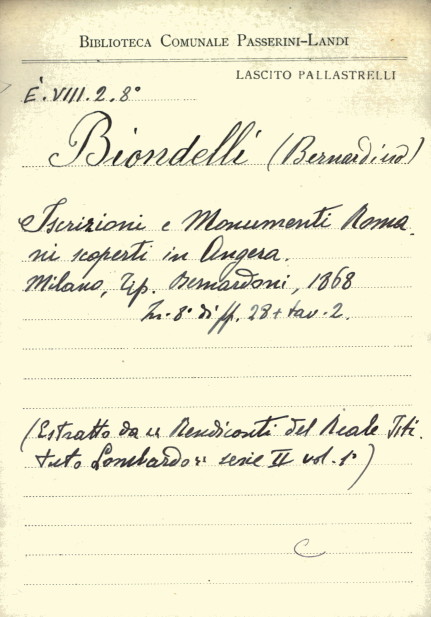 BIBLIOTECA COMUNALE PASSERINI-LANDI
LASCITO PALLASTRELLI
E. VIII. 2. 8°
Biondelli (Bernardino)
Iscrizioni e Monumenti Roma
ni scoperti in Angera.
Milano, Tip. Bernardoni, 1868
In-8° di ff. 28 + tav. 2.
(Estratto da "Rendiconti del Reale Isti.
tuto Lombardo" serie II vol. 1°)
C